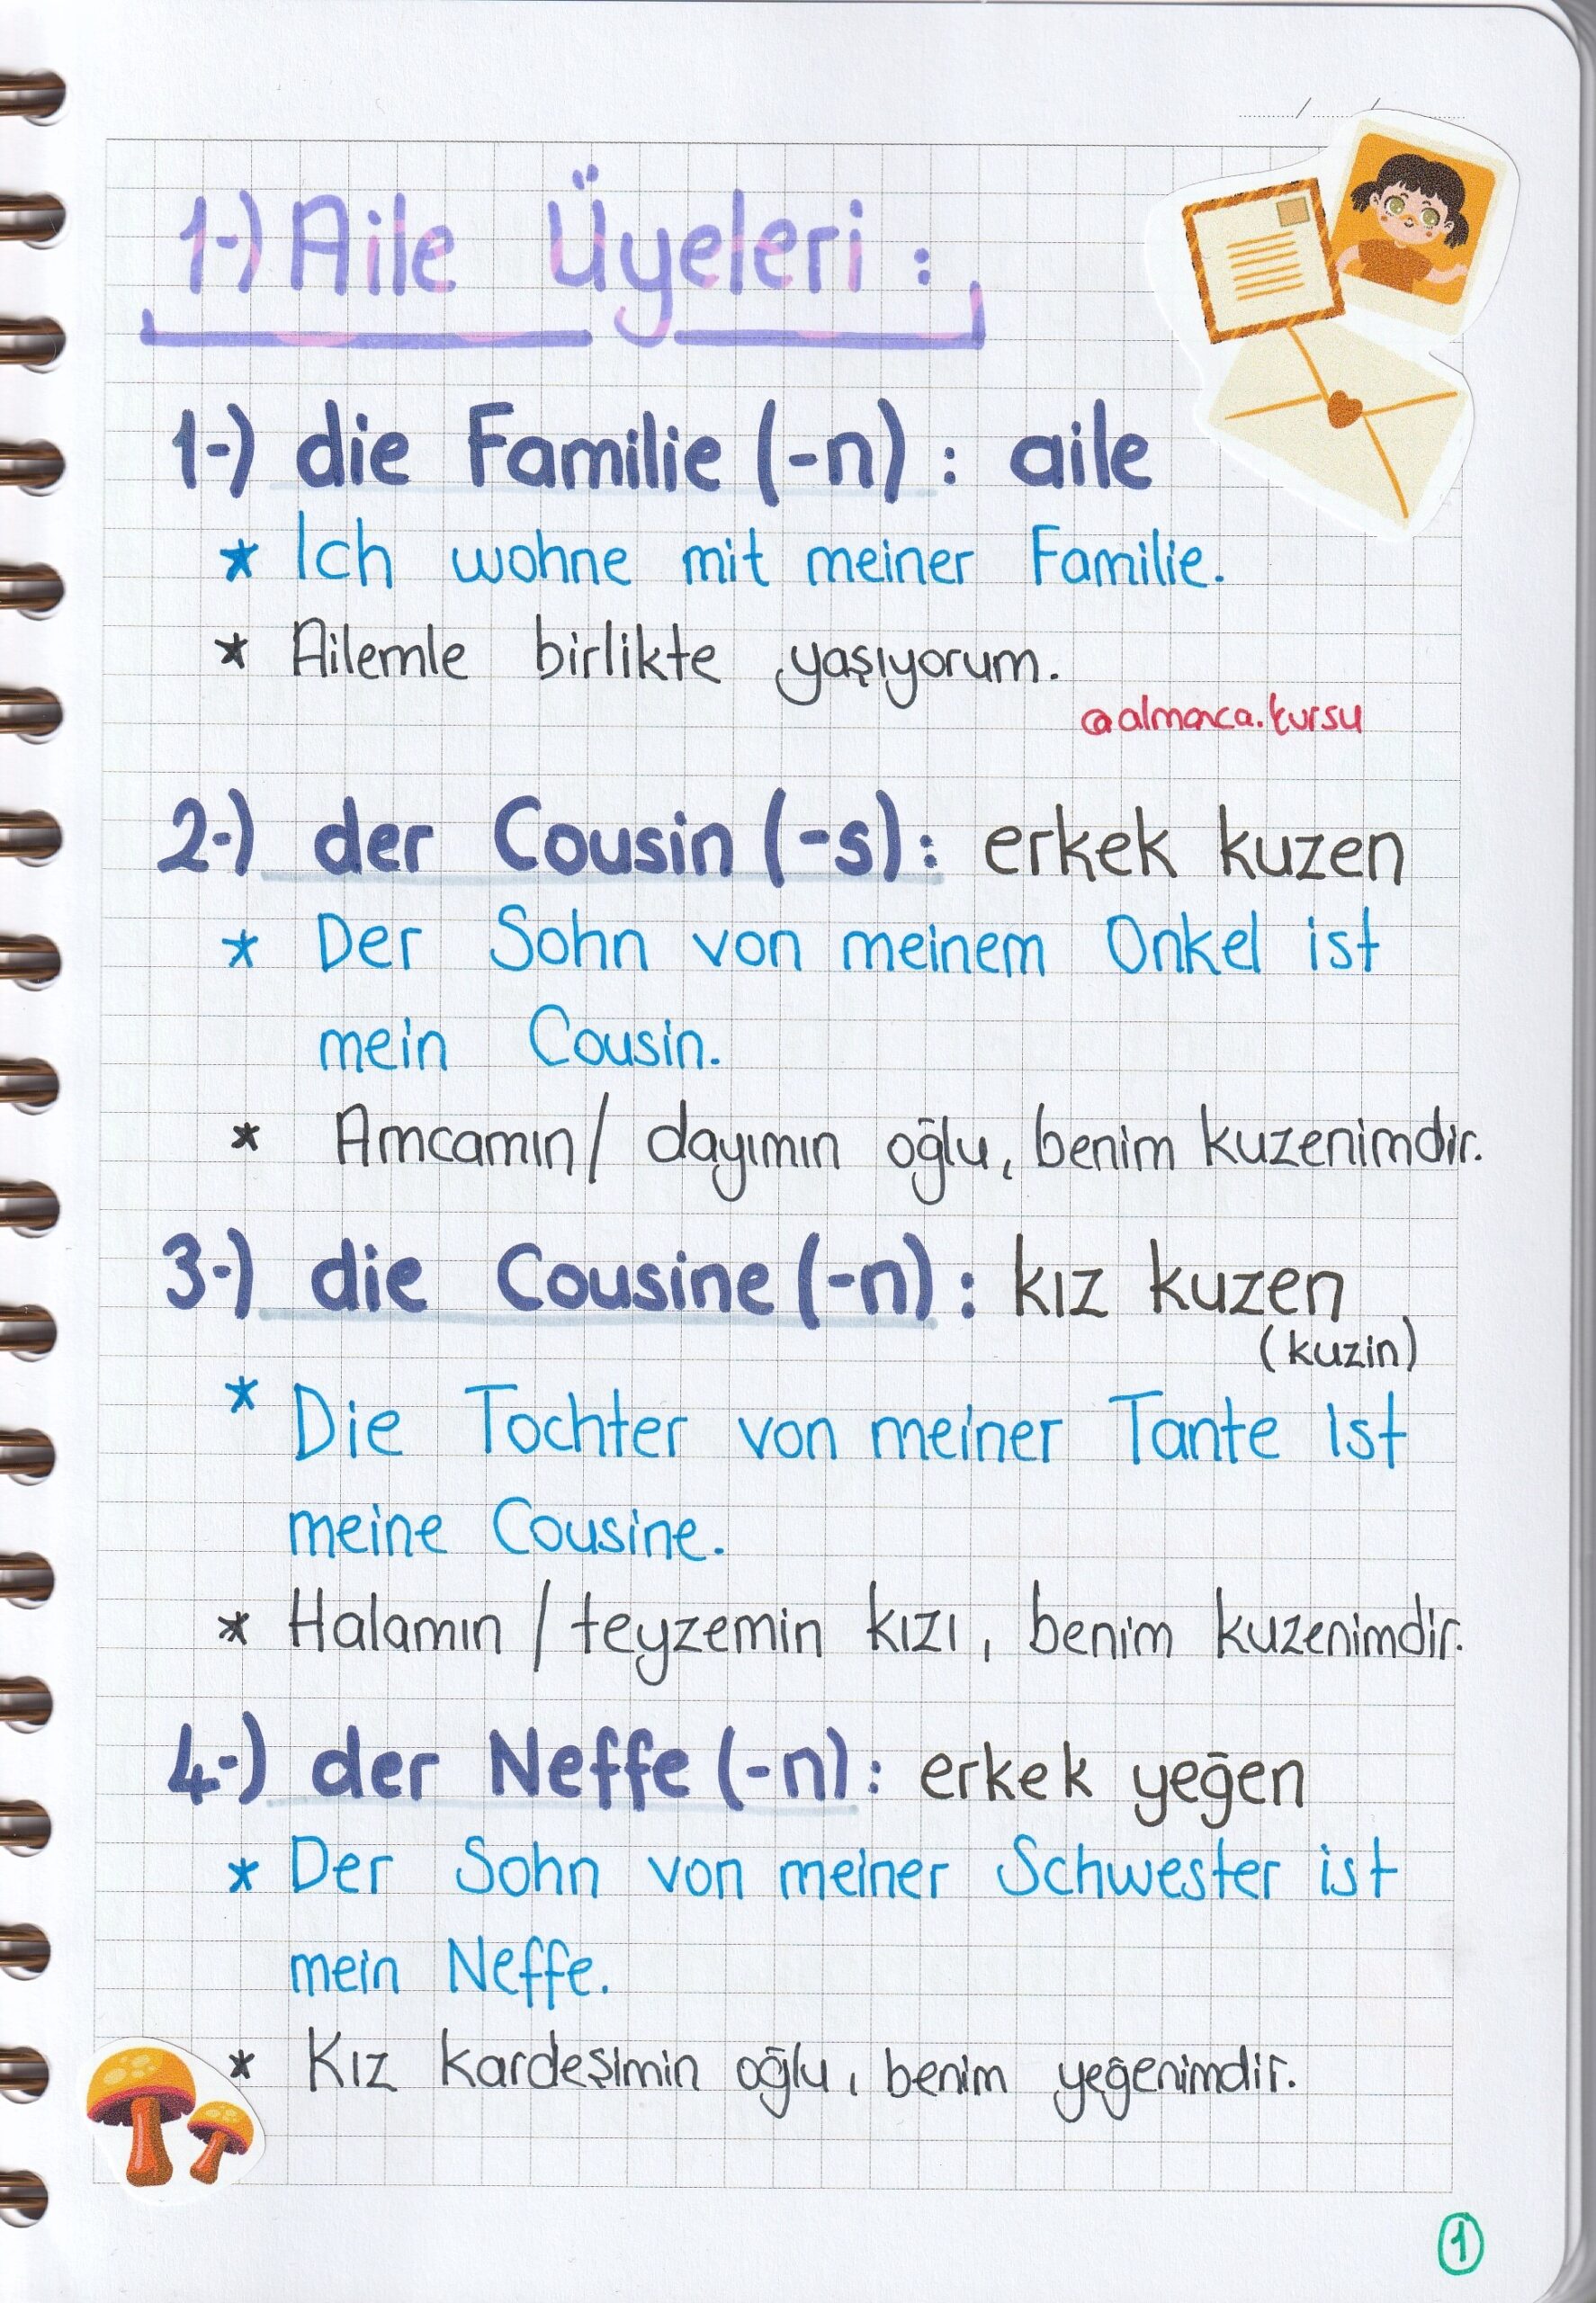 1-) Aile Üyeleri :
1-) die Familie (-n) : aile
* Ich wohne mit meiner Familie.
* Ailemle birlikte yaşıyorum.
@almanca.kursu
2-) der Cousin (-s) : erkek kuzen
* Der Sohn von meinem Onkel ist
mein Cousin.
* Amcamın / dayımın oğlu, benim kuzenimdir.
3-) die Cousine (-n) : kız kuzen
(kuzin)
* Die Tochter von meiner Tante ist
meine Cousine.
* Halamın / teyzemin kızı, benim kuzenimdir.
4-) der Neffe (-n) : erkek yeğen
* Der Sohn von meiner Schwester ist
mein Neffe.
* Kız kardeşimin oğlu, benim yeğenimdir.
1